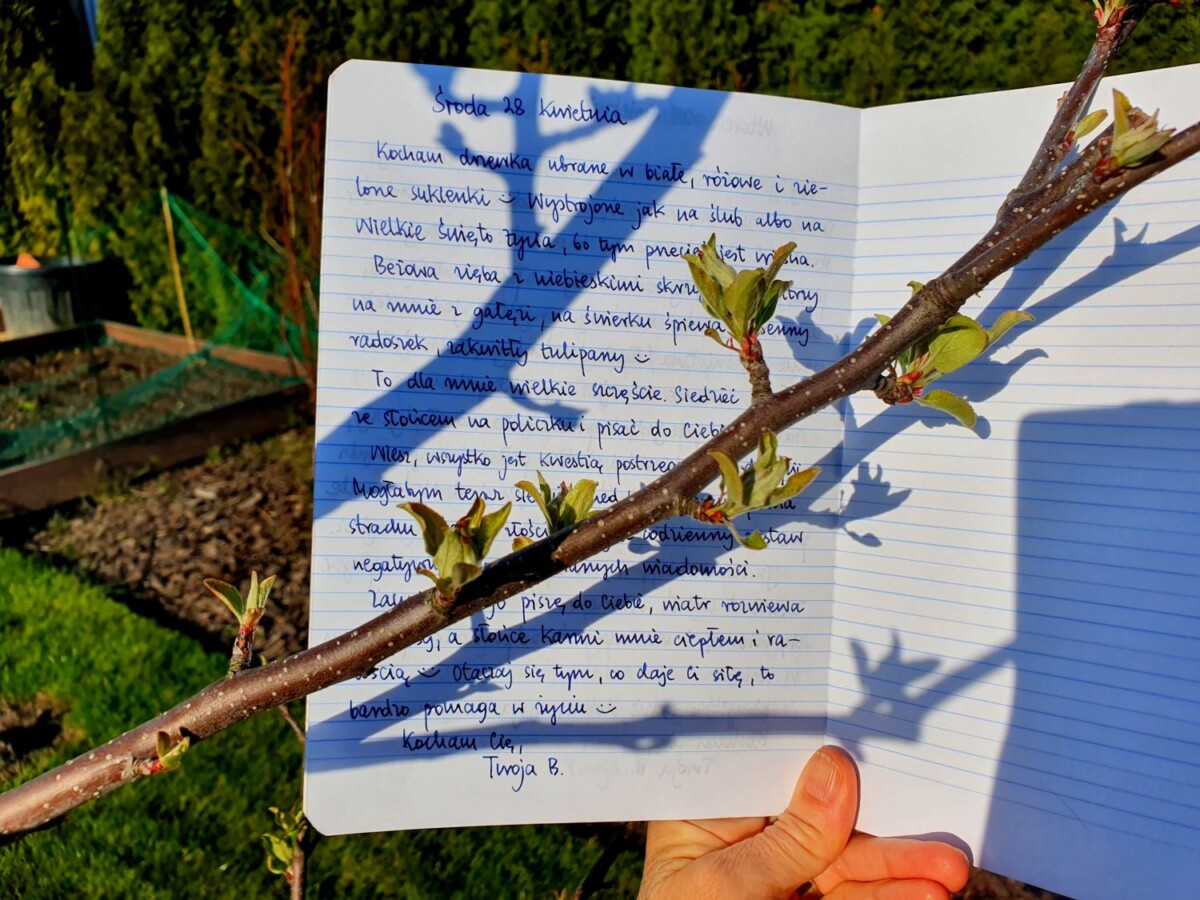 Środa 28 kwietnia
Kocham drzewka ubrane w białe, różowe i zie-
lone sukienki :) Wystrojone jak na ślub albo na
Wielkie Święto Życia, bo tym przecież jest wiosna.
Beżowa zięba z niebieskimi
na mnie z gałęzi, na świerku śpiewa
radośnie, zakwitły tulipany :)
To dla mnie wielkie szczęście. Siedzieć
ze słońcem na policzku i pisać do Ciebie
Wiesz, wszystko jest kwestią
Mogłabym teraz
strachu codzienny
wiadomości.
piszę do Ciebie, wiatr rozwiewa
a słońce karmi mnie ciepłem i ra-
:) Otaczaj się tym, co daje Ci siłę, to
bardzo pomaga w życiu :)
Kocham Cię,
Twoja B.